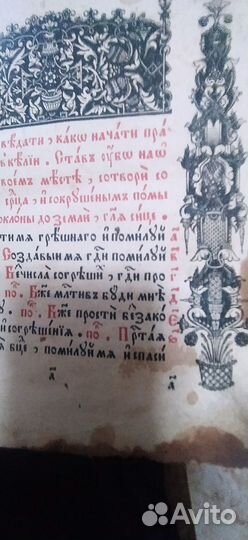 вѣдати, какѡ начати пра
в келїи. Ставъ ѹбѡ наѡ
воемъ мѣстѣ, сотвори со
срⷣца, и сокрушеныⷨ помы
оклоны до земли, гл҃ѧ сице.
тимѧ грѣшнаго и помилуй
Создавыи мѧ гдⷭ҇и помилуй
Безчисла согрѣшиⷯ, гдⷭ҇и про
по. Бж҃е милⷭ҇тивъ буди мнѣ
у. по. Бж҃е прости беззако
согрѣшенїѧ. по. Прⷱ҇таѧ
ѧ бц҃е, помилуй мѧ и спаси
а
а
Avito